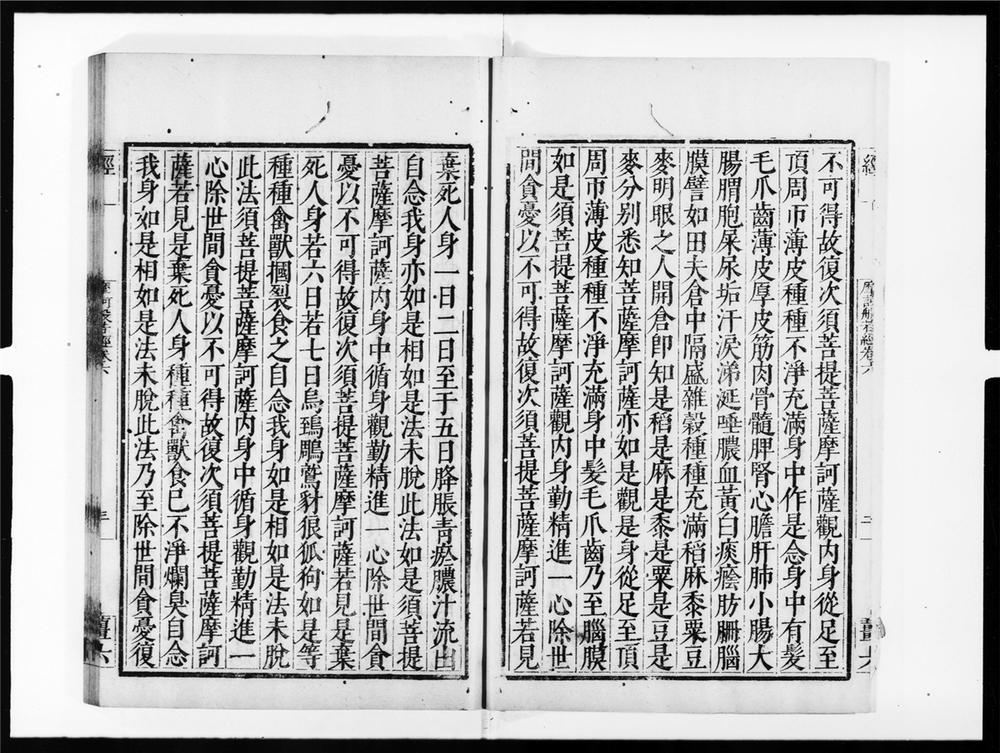 經 摩訶般若經卷六 三 薑六
不可得故復次須菩提菩薩摩訶薩觀内身從足至
頂周帀薄皮種種不淨充滿身中作是念身中有髮
毛爪齒薄皮厚皮筋肉骨髓脾腎心膽肝肺小腸大
腸胃胞屎尿垢汗淚涕涎唾膿血黃白痰癊肪𦙽腦
膜譬如田夫倉中隔盛雜穀種種充滿稻麻黍粟豆
麥明眼之人開倉卽知是稻是麻是黍是粟是豆是
麥分別悉知菩薩摩訶薩亦如是觀是身從足至頂
周帀薄皮種種不淨充滿身中髮毛爪齒乃至腦膜
如是須菩提菩薩摩訶薩觀内身勤精進一心除世
間貪憂以不可得故復次須菩提菩薩摩訶薩若見
棄死人身一日二日至于五日胮脹青瘀膿汁流出
自念我身亦如是相如是法未脫此法如是須菩提
菩薩摩訶薩内身中循身觀勤精進一心除世間貪
憂以不可得故復次須菩提菩薩摩訶薩若見是棄
死人身若六日若七日烏鵄鵰鷲豺狼狐狗如是等
種種禽獸摑裂食之自念我身如是相如是法未脫
此法須菩提菩薩摩訶薩内身中循身觀勤精進一
心除世間貪憂以不可得故復次須菩提菩薩摩訶
薩若見是棄死人身種種禽獸食已不淨爛臭自念
我身如是相如是法未脫此法乃至除世間貪憂復
經 摩訶般若經卷六 三 薑六